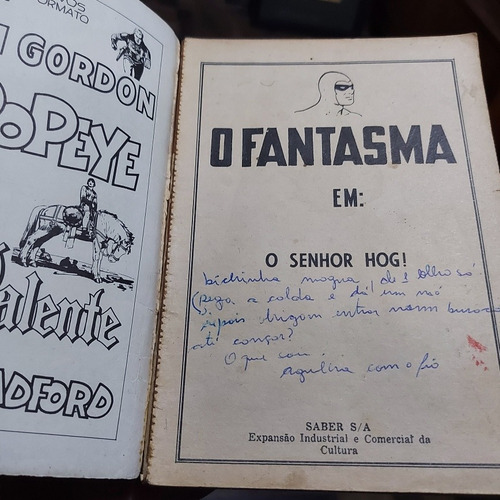 OS
FORMATO
GORDON
POPEYE
alente
ADFORD
O FANTASMA
EM:
O SENHOR HOG!
bichinha magra de 1 olho só
Pega a calda e dá um nó
depois brigam entrar num buraco
até cansar?
O que
agulha com o fio
SABER S/A
Expansão Industrial e Comercial da
Cultura